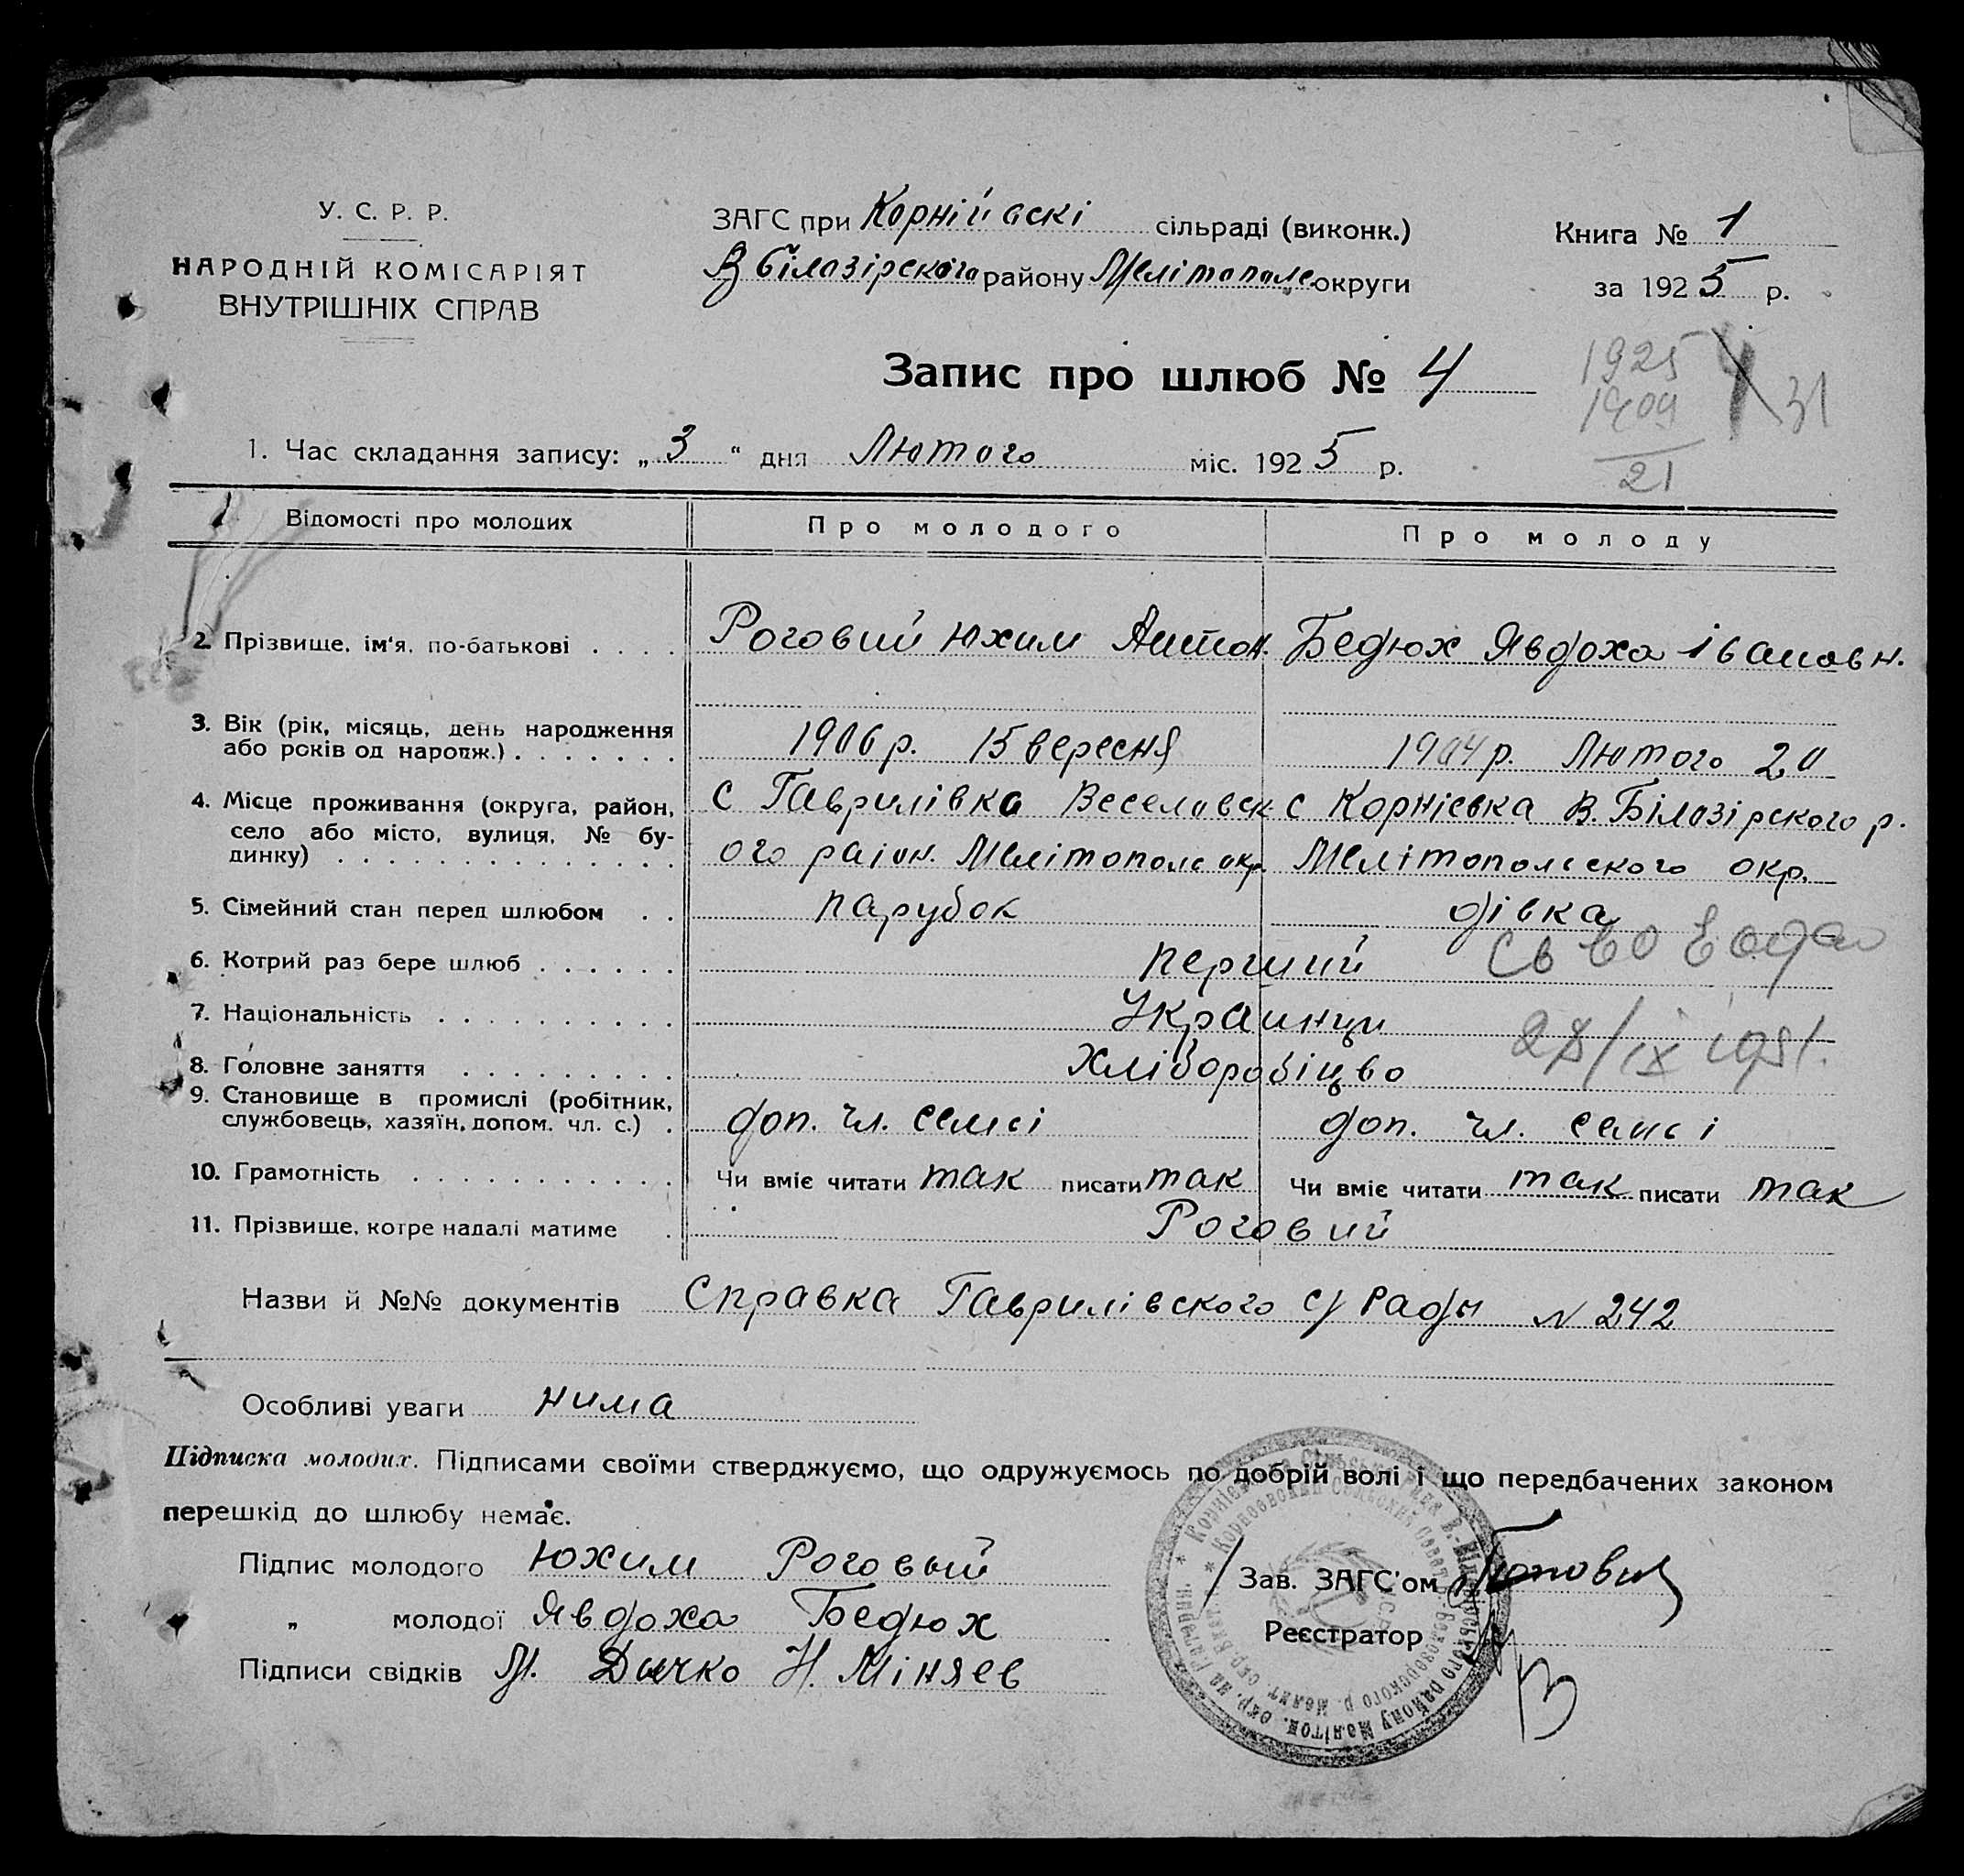 У. С. Р. Р.
НАРОДНІЙ КОМІСАРІЯТ
ВНУТРІШНІХ СПРАВ
ЗАГС при Корнійвскі сільраді (виконк.)
В білазірского району Мелітополс округи
Книга № 1
за 1925 р.
Запис про шлюб № 4
1925
1909
21
31
1. Час складання запису: „3“ дня Лютого міс. 1925 р.
Відомості про молодих Про молодого Про молоду
2. Прізвище, ім'я, по-батькові . . . . Роговий Юхим Антон. Бедюх Явдоха Івановн.
3. Вік (рік, місяць, день народження 1906 р. 15 вересня 1904 р. Лютого 20
або років од народж.) . . . . . . .
4. Місце проживання (округа, район, с Гаврилівка Веселовск с Корнієвка В. Білазірского р.
село або місто, вулиця, № бу-
динку) . . . . . . . . . . . . . . ого раіон. Мелітополс окр. Мелітопольского окр.
5. Сімейний стан перед шлюбом . . парубок дівка
6. Котрий раз бере шлюб . . . . . . перший
Св во
7. Національність . . . . . . . . . . Украинци
28/IX 1951.
8. Головне заняття . . . . . . . . . Хліборобіцво
9. Становище в промислі (робітник,
службовець, хазяїн, допом. чл. с.) . доп. чл. семєі доп. чл. семьі
10. Грамотність . . . . . . . . . . . . Чи вміє читати так писати так Чи вміє читати так писати так
11. Прізвище, котре надалі матиме . Роговий
Назви й №№ документів Справка Гаврилівского с/ Рады N 242
Особливі уваги нима
Підписка молодих. Підписами своїми стверджуємо, що одружуємось по добрій волі і що передбачених законом
перешкід до шлюбу немає.
Підпис молодого Юхим Роговый
„ молодої Явдоха Бедюх
Підписи свідків М. Дычко Н. Міняев
Зав. ЗАГС'ом
Реєстратор